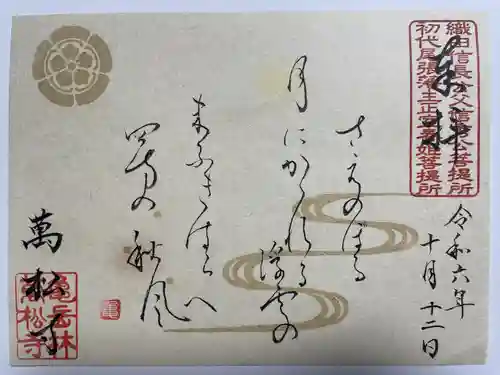 織田信長公父信秀公菩提所
初代尾張藩主正室春姫菩提所
奉拝
令和六年
十月十二日
さえのほる
月にかゝれる
浮雲の
末ふきはらへ
四方の秋風
萬松寺
亀岳林
萬松寺